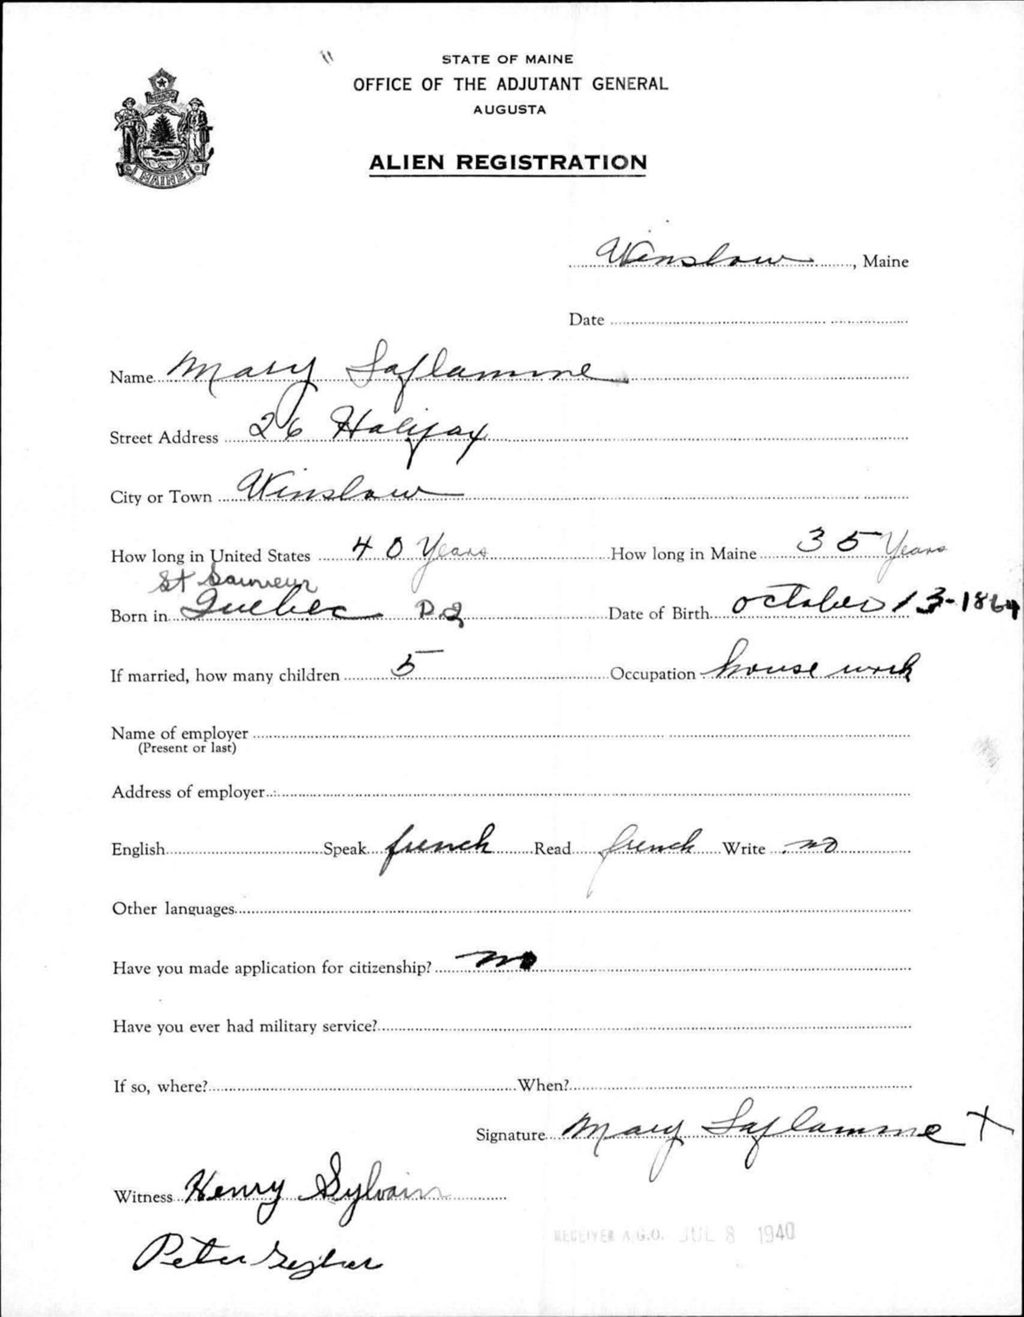 STATE OF MAINE
OFFICE OF THE ADJUTANT GENERAL
AUGUSTA
ALIEN REGISTRATION
MAINE
Winslow, Maine
Date
Name Mary Laflamme
Street Address 26 Halifax
City or Town Winslow
How long in United States 40 Years How long in Maine 35 Years
St Sauveur
Born in Quebec P.Q Date of Birth october 13-1864
If married, how many children 5 Occupation house work
Name of employer
(Present or last)
Address of employer
English Speak french Read french Write no
Other languages
Have you made application for citizenship? no
Have you ever had military service?
If so, where? When?
Signature Mary Laflamme X
Witness Henry Sylvain
RECEIVED A.G.O. JUL 8 1940
Peter